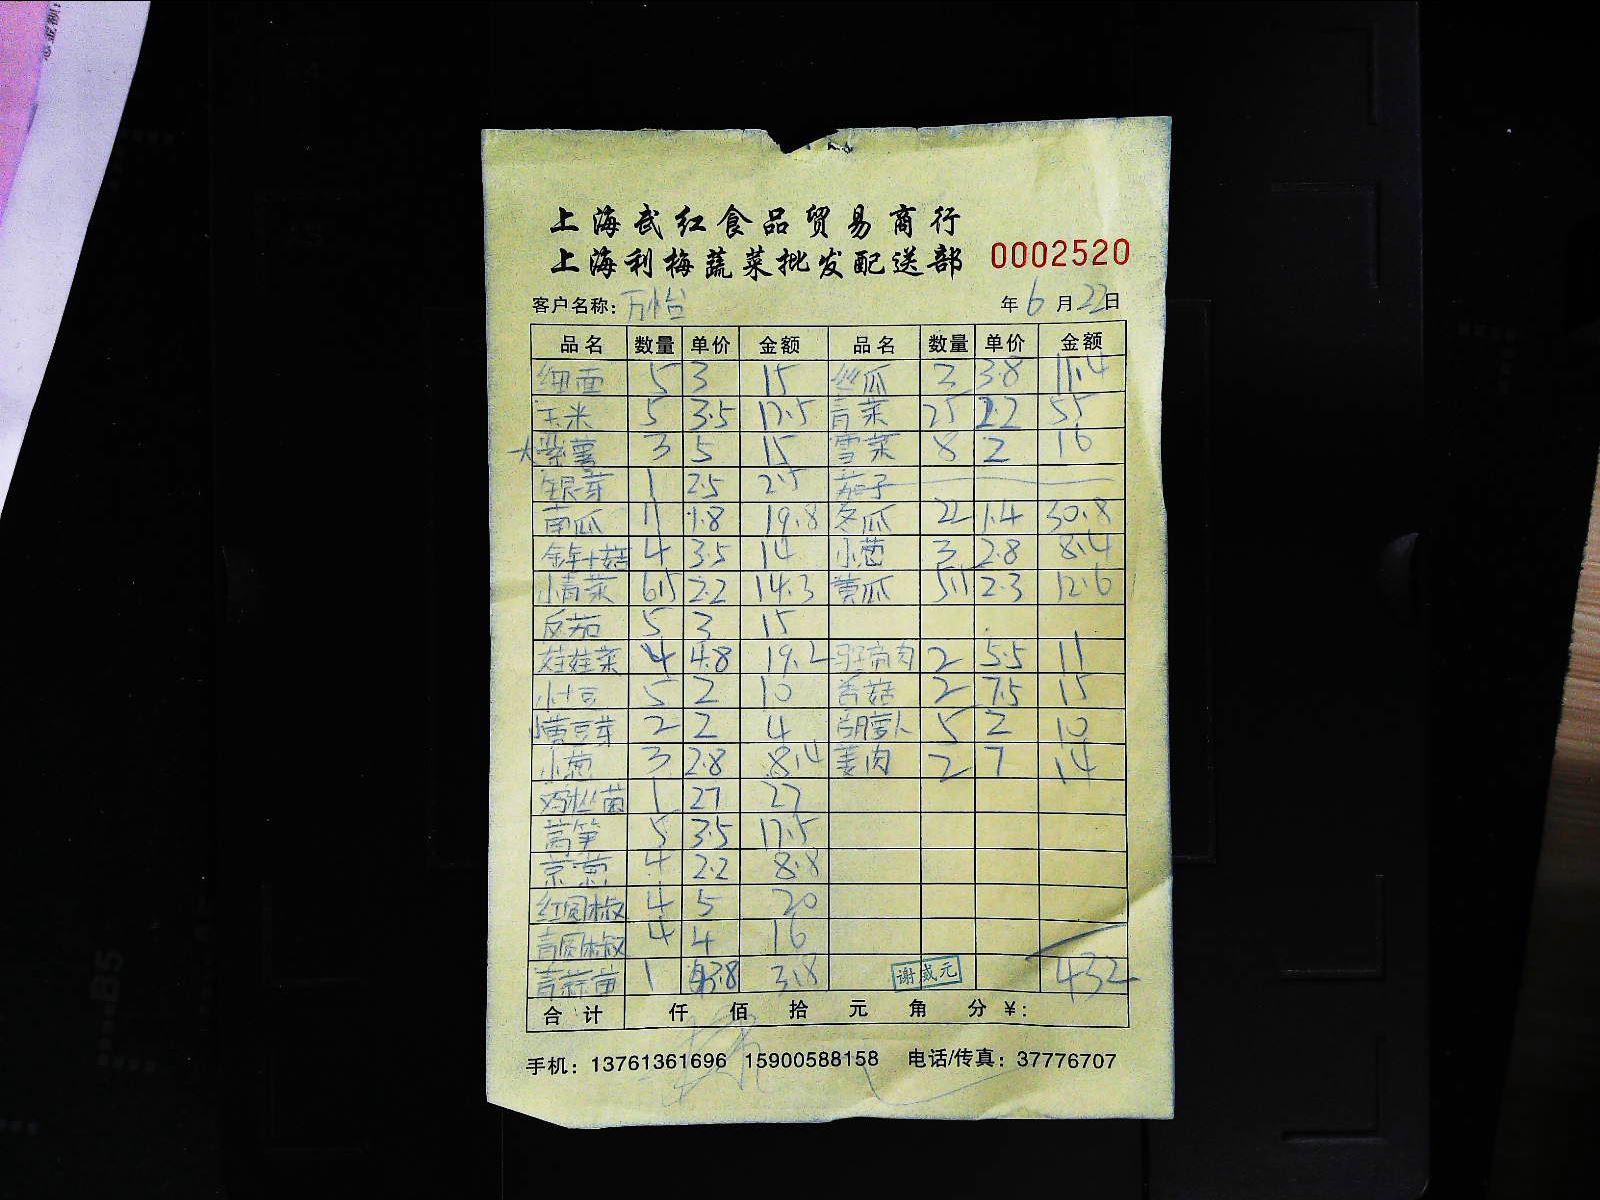 上海武红食品贸易商行
上海利梅蔬菜批发配送部 0002520
客户名称: 万怡 年 6 月 22 日
品名 数量 单价 金额 品名 数量 单价 金额
细面 5 3 15 丝瓜 3 3.8 11.4
玉米 5 3.5 17.5 青菜 25 2.2 55
大紫薯 3 5 15 雪菜 8 2 16
银芽 1 2.5 2.5 茄子
南瓜 11 1.8 19.8 冬瓜 22 1.4 30.8
金针菇 4 3.5 14 小葱 3 2.8 8.4
小青菜 6.5 2.2 14.3 黄瓜 5.5 2.3 12.6
反茄 5 3 15
娃娃菜 4 4.8 19.2 2 5.5 11
小土豆 5 2 10 香菇 2 7.5 15
小黄豆芽 2 2 4 胡萝卜 5 2 10
小葱 3 2.8 8.4 姜肉 2 7 14
鸡枞菌 1 27 27
莴笋 5 3.5 17.5
京葱 4 2.2 8.8
红圆椒 4 5 20
青圆椒 4 4 16
青蒜苗 1 3.8 3.8 谢威元 432
合计 仟 佰 拾 元 角 分 ¥:
手机: 13761361696 15900588158 电话/传真: 37776707